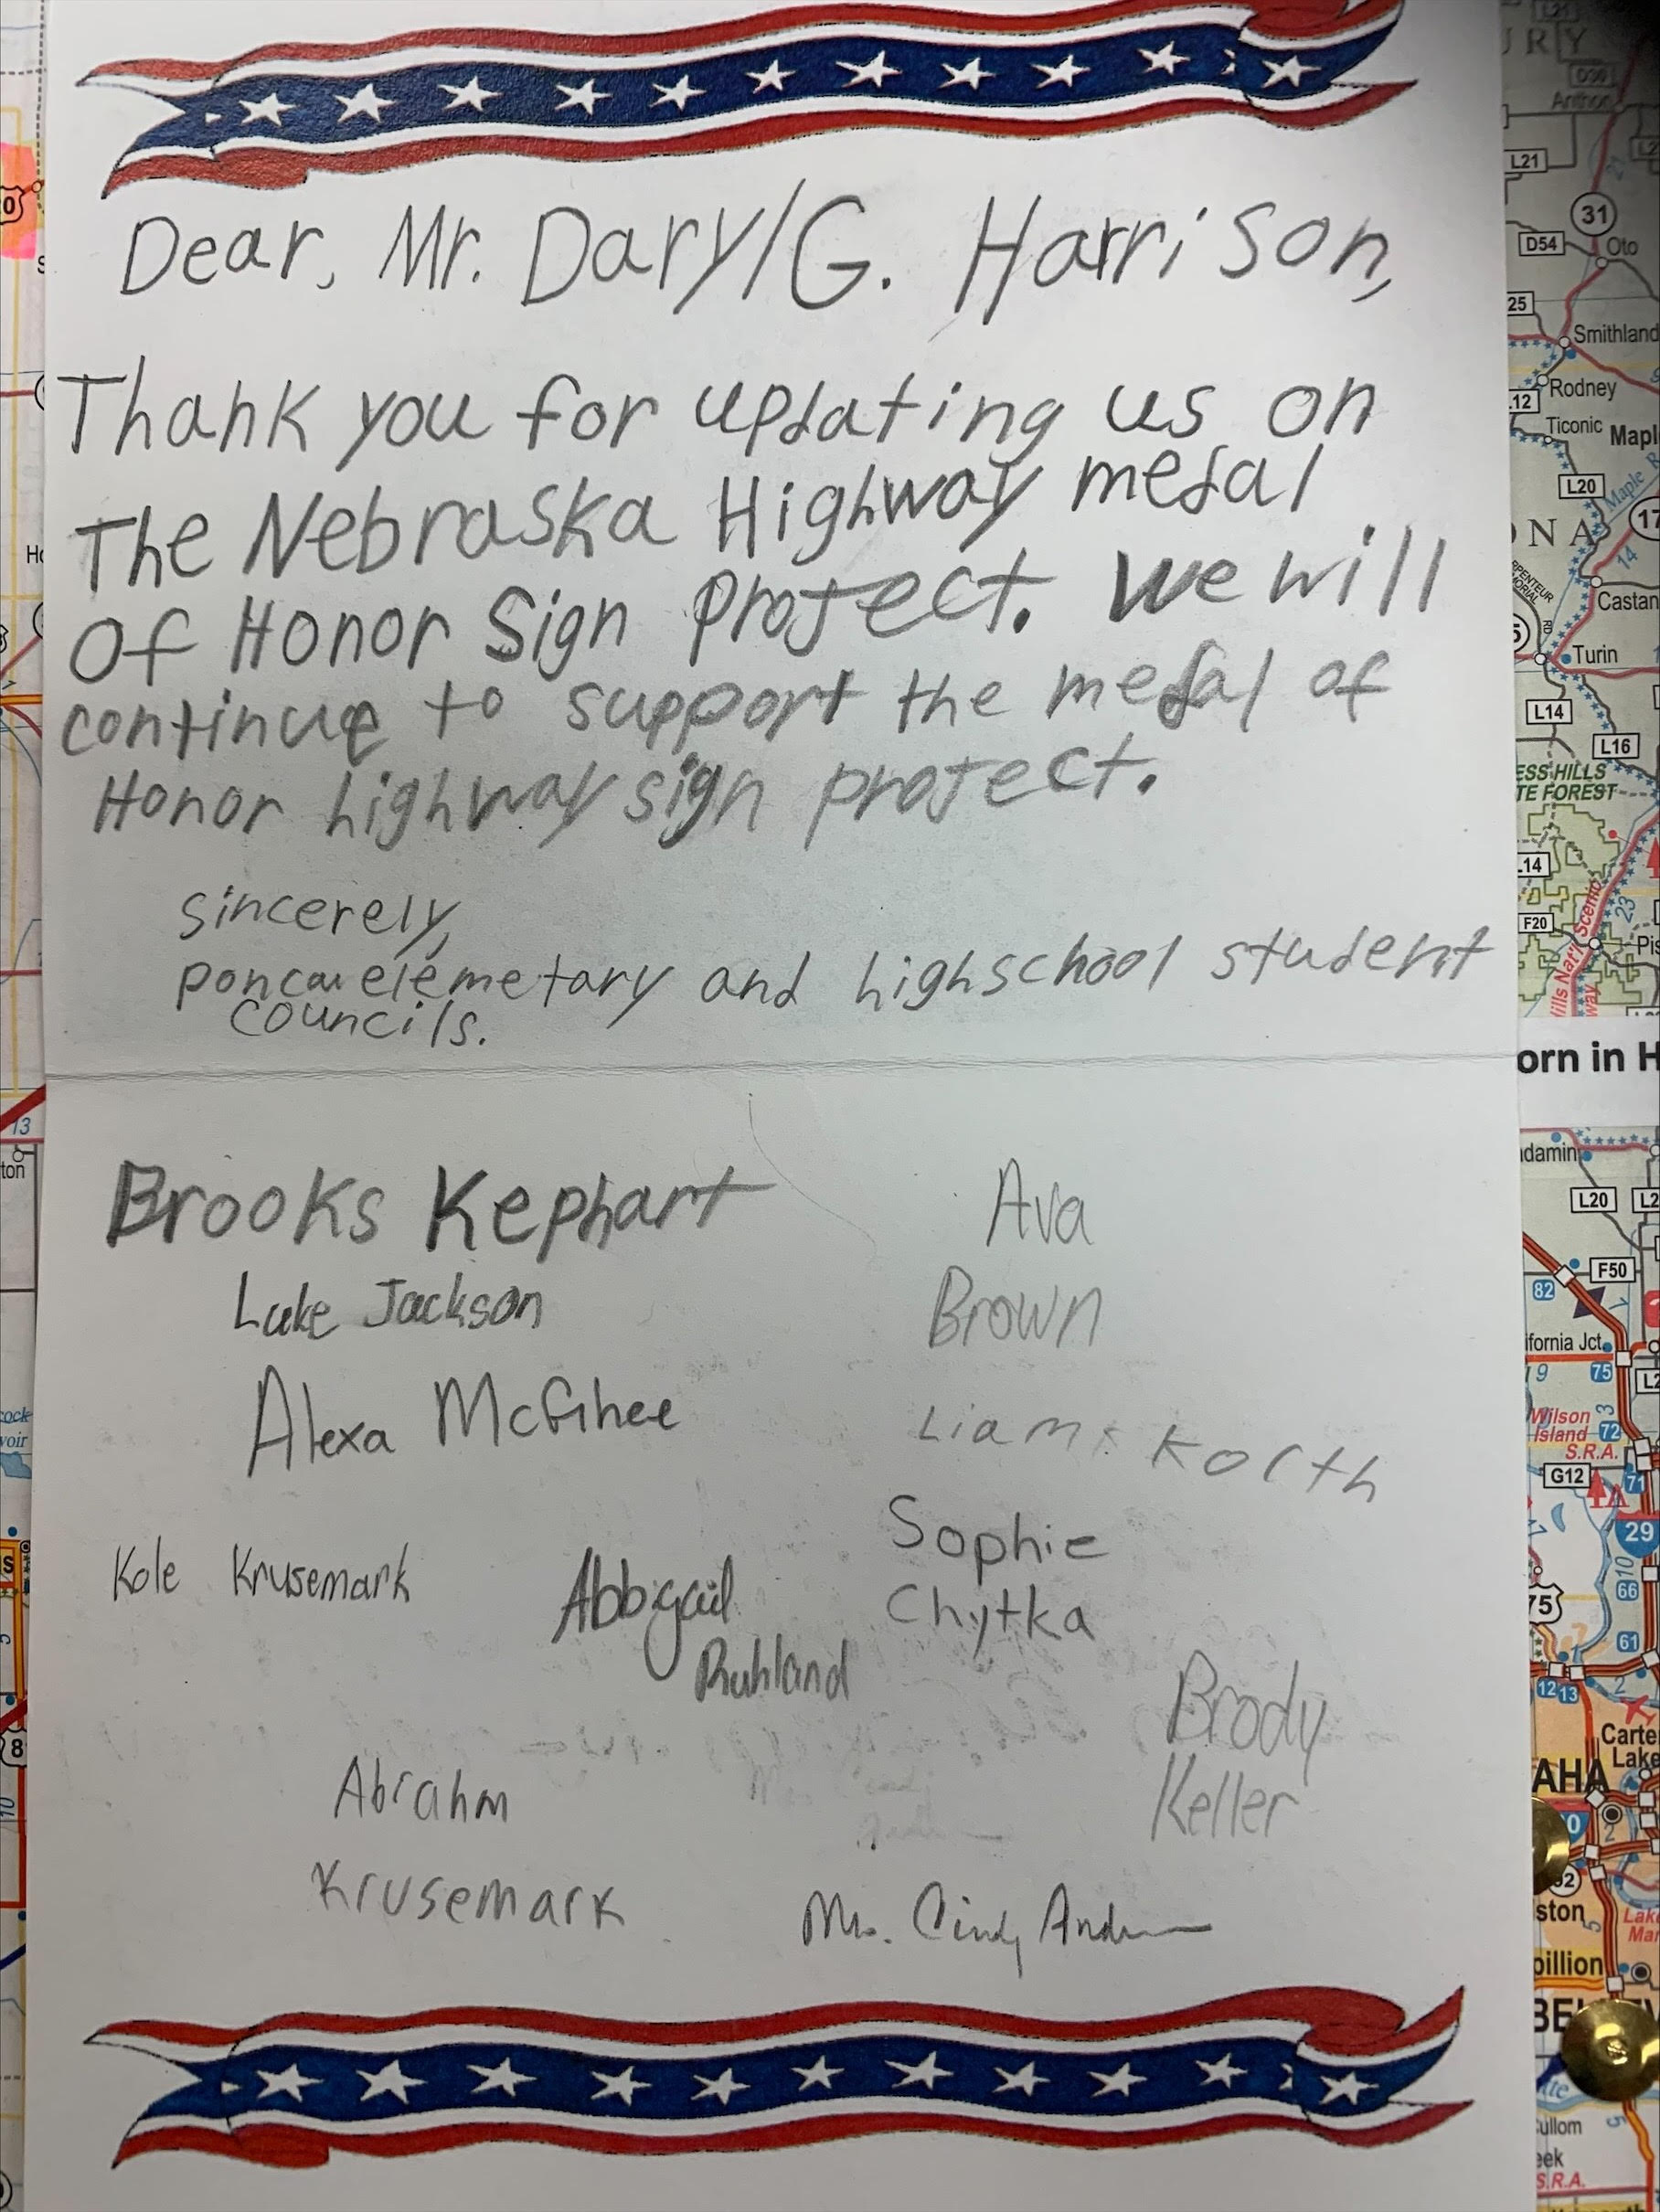 Dear, Mr. Daryl G. Harrison,
Thank you for updating us on
The Nebraska Highway medal
Of Honor Sign project. We will
continue to support the medal of
Honor highway sign project.
sincerely,
ponca elemetary and highschool student
councils.
Brooks Kephart
Ava
Brown
Luke Jackson
Alexa McGhee
Liam Korth
Sophie
Chytka
Kole Krusemark
Abbigail
Ruhland
Brody
Keller
Abrahm
Krusemark
Mrs. Cindy
L21
31
D54
Oto
25
Smithland
Rodney
12
Ticonic
L20
17
14
Castan
Turin
L14
L16
14
F20
23
orn in H
13
L20
F50
82
75
Wilson
Island
S.R.A.
72
G12
71
29
10
66
75
61
12
13
2
Carte
Lake
AHA
8
10